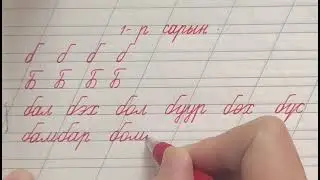 1-р сарын
б б б б
Б Б Б Б
бал бэх бол буур бөх бүс
бамбар